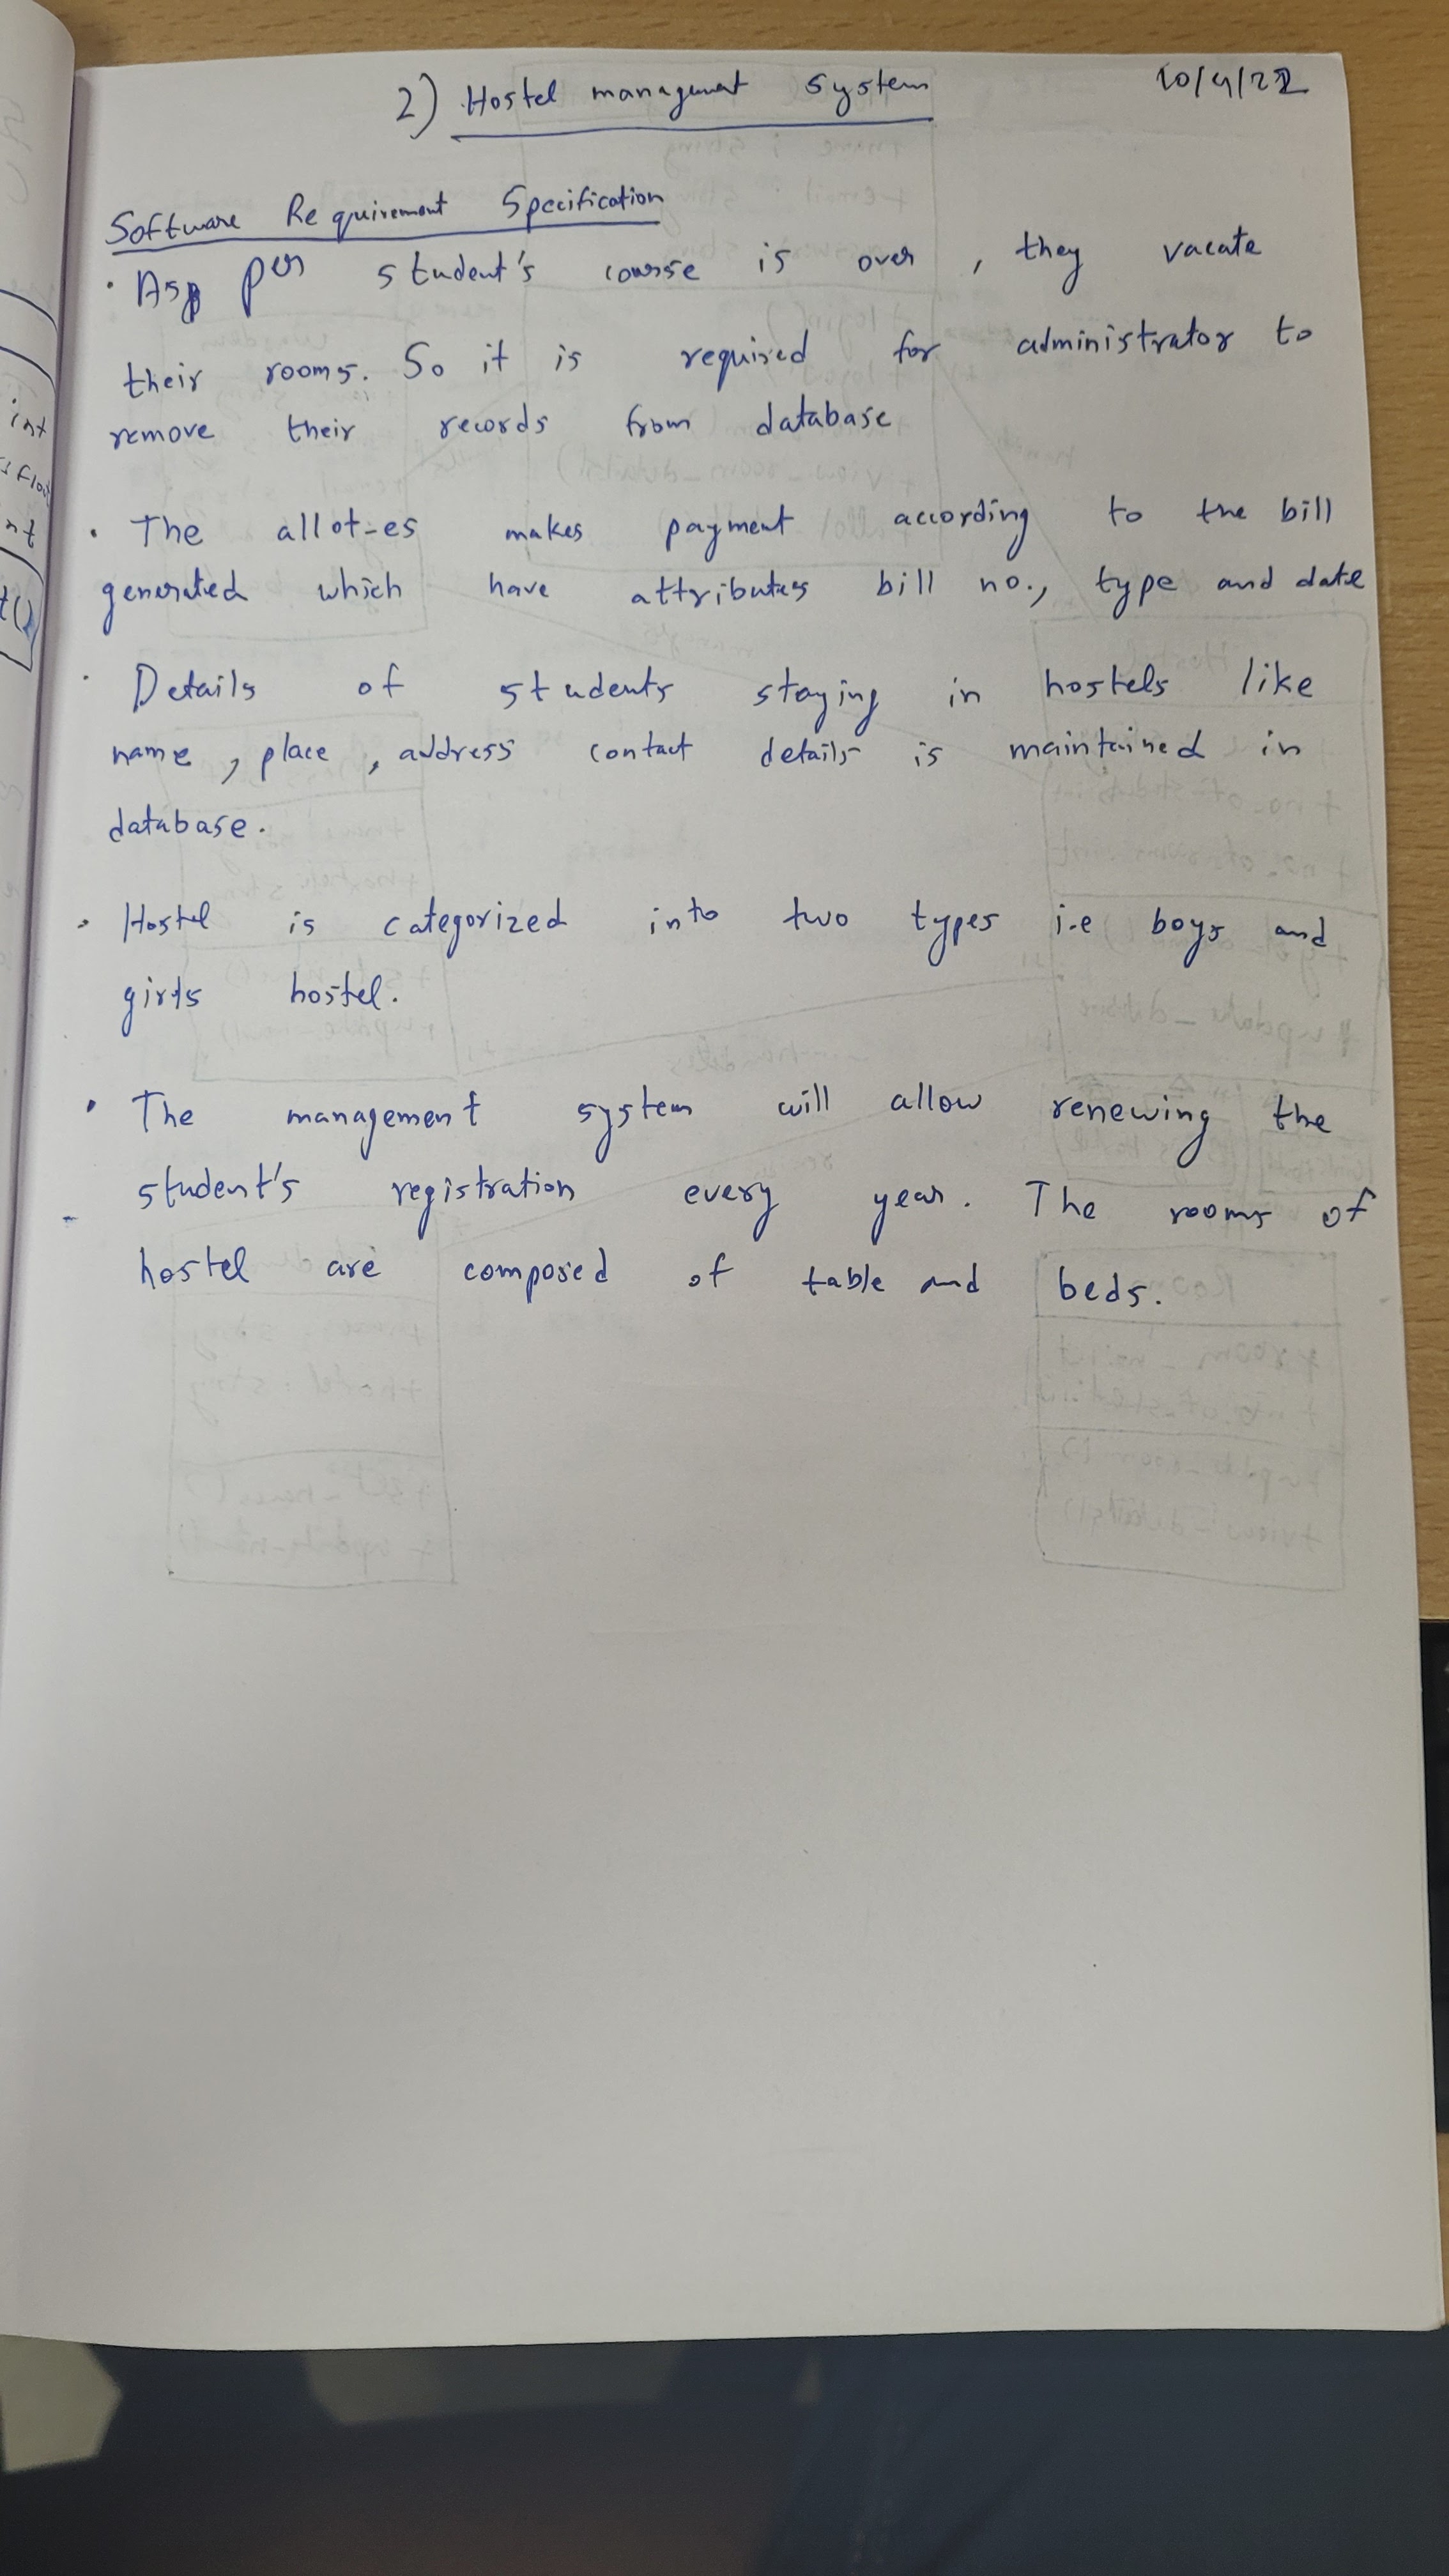 2) Hostel management system 10/4/22
Software Requirement Specification
• As per student's course is over, they vacate
their rooms. So it is required for administrator to
remove their records from database
• The allot-es makes payment according to the bill
generated which have attributes bill no., type and date
• Details of students staying in hostels like
name, place, address contact details is maintained in
database.
• Hostel is categorized into two types i.e boys and
girls hostel.
• The management system will allow renewing the
student's registration every year. The rooms of
hostel are composed of table and beds.
int
nt